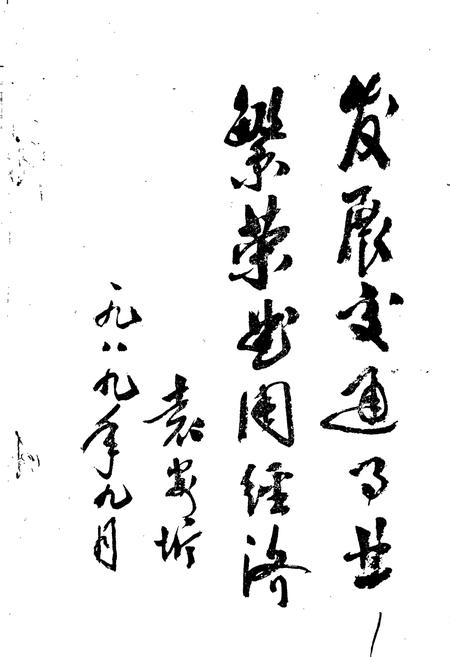 发展交通事业
繁荣曲周经济
袁
一九八九年九月